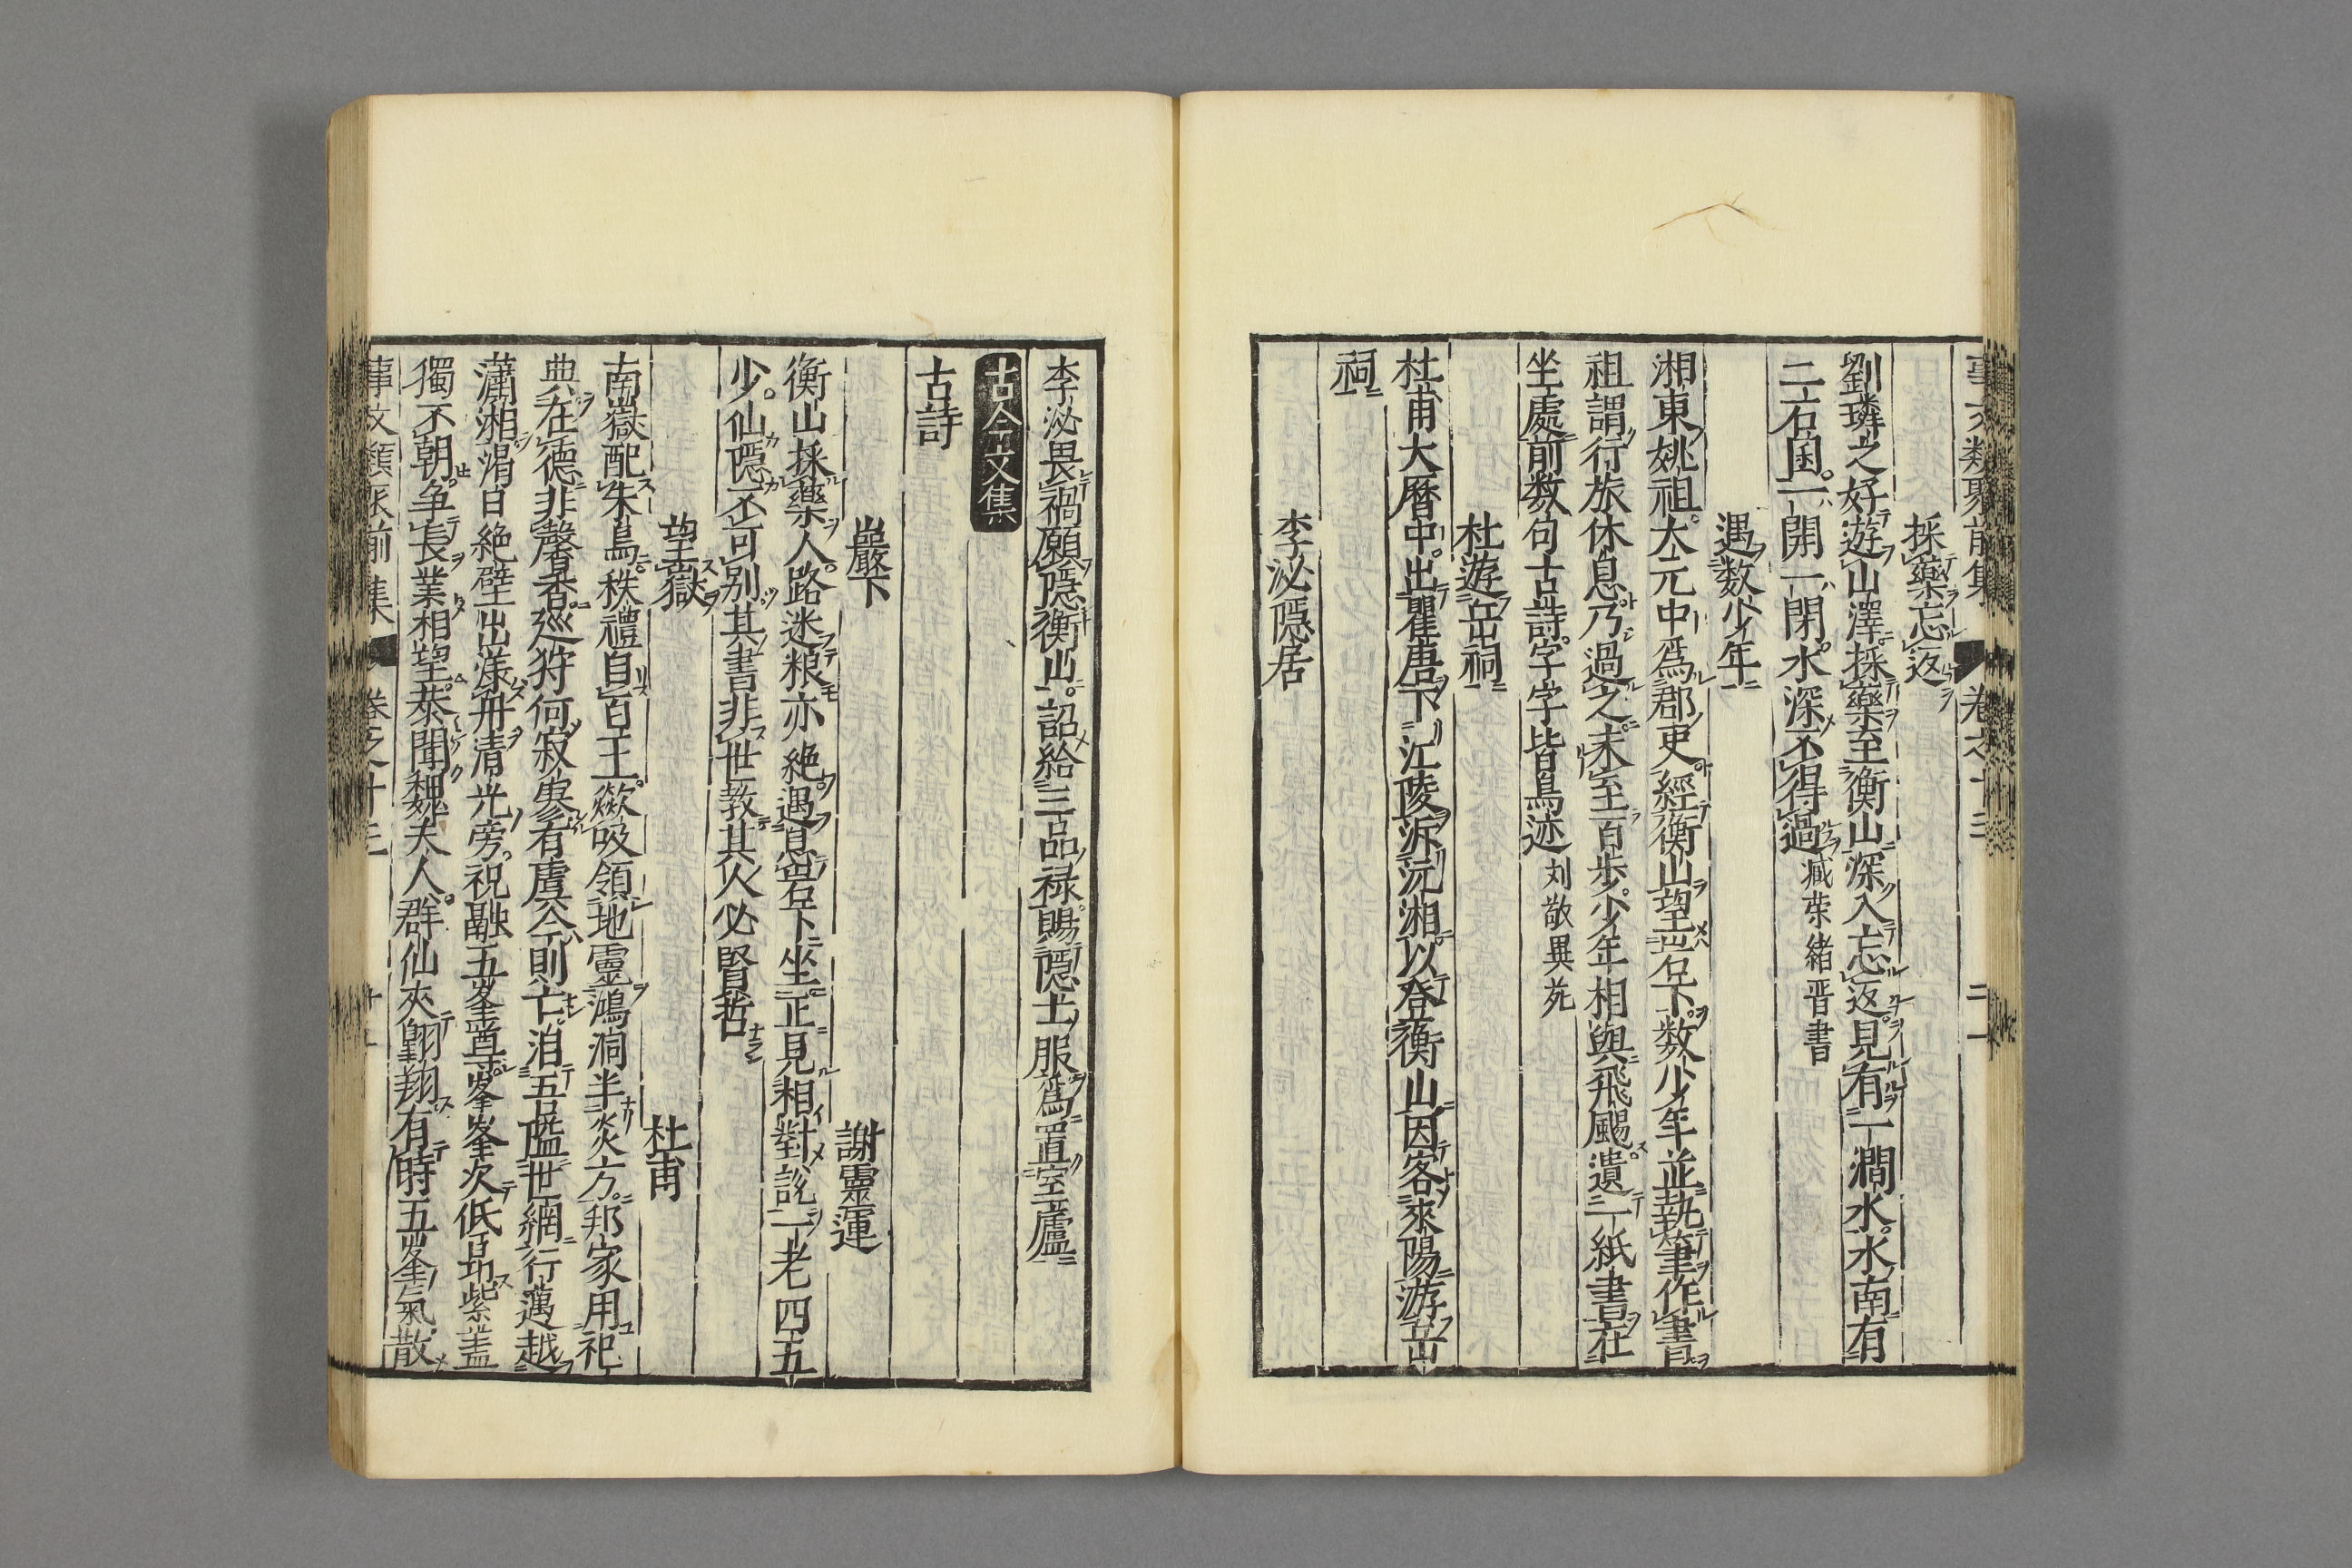 採藥忘返
劉璘之好遊山澤採藥至衡山深入忘返見有一澗水水南有
二石囷一開一閉水深不得過臧荣緒晋書
遇数少年
湘東姚祖大元中爲郡吏經衡山望岩下数少年並執筆作書
祖謂行旅休息乃過之未至百歩少年相與飛颺遺一紙書在
坐處前数句古詩字字皆鳥迹刘敬異苑
杜遊岳祠
杜甫大曆中出瞿唐下江陵泝沅湘以登衡山因客耒陽游岳
祠
李泌隠居
李泌畏禍願隠衡山詔給三品禄賜隠士服爲置室廬
古今文集
古詩
巖下 謝靈運
衡山採藥人路迷粮亦絶遇息岩下坐正見相對説一老四五
少仙隠不可别其書非世教其人必賢哲
望嶽 杜甫
南嶽配朱鳥秩禮自百王歘吸領地靈鴻洞半炎方邦家用祀
典在德非馨香巡狩何寂寥有虞今則亡洎吾隘世網行邁越
瀟湘渇日絶壁出漾舟清光旁祝融五峯尊峯峯次低昂紫盖
獨不朝争長業相望恭聞魏夫人群仙夾翺翔有時五峯氣散
事文類聚前集 卷之十三